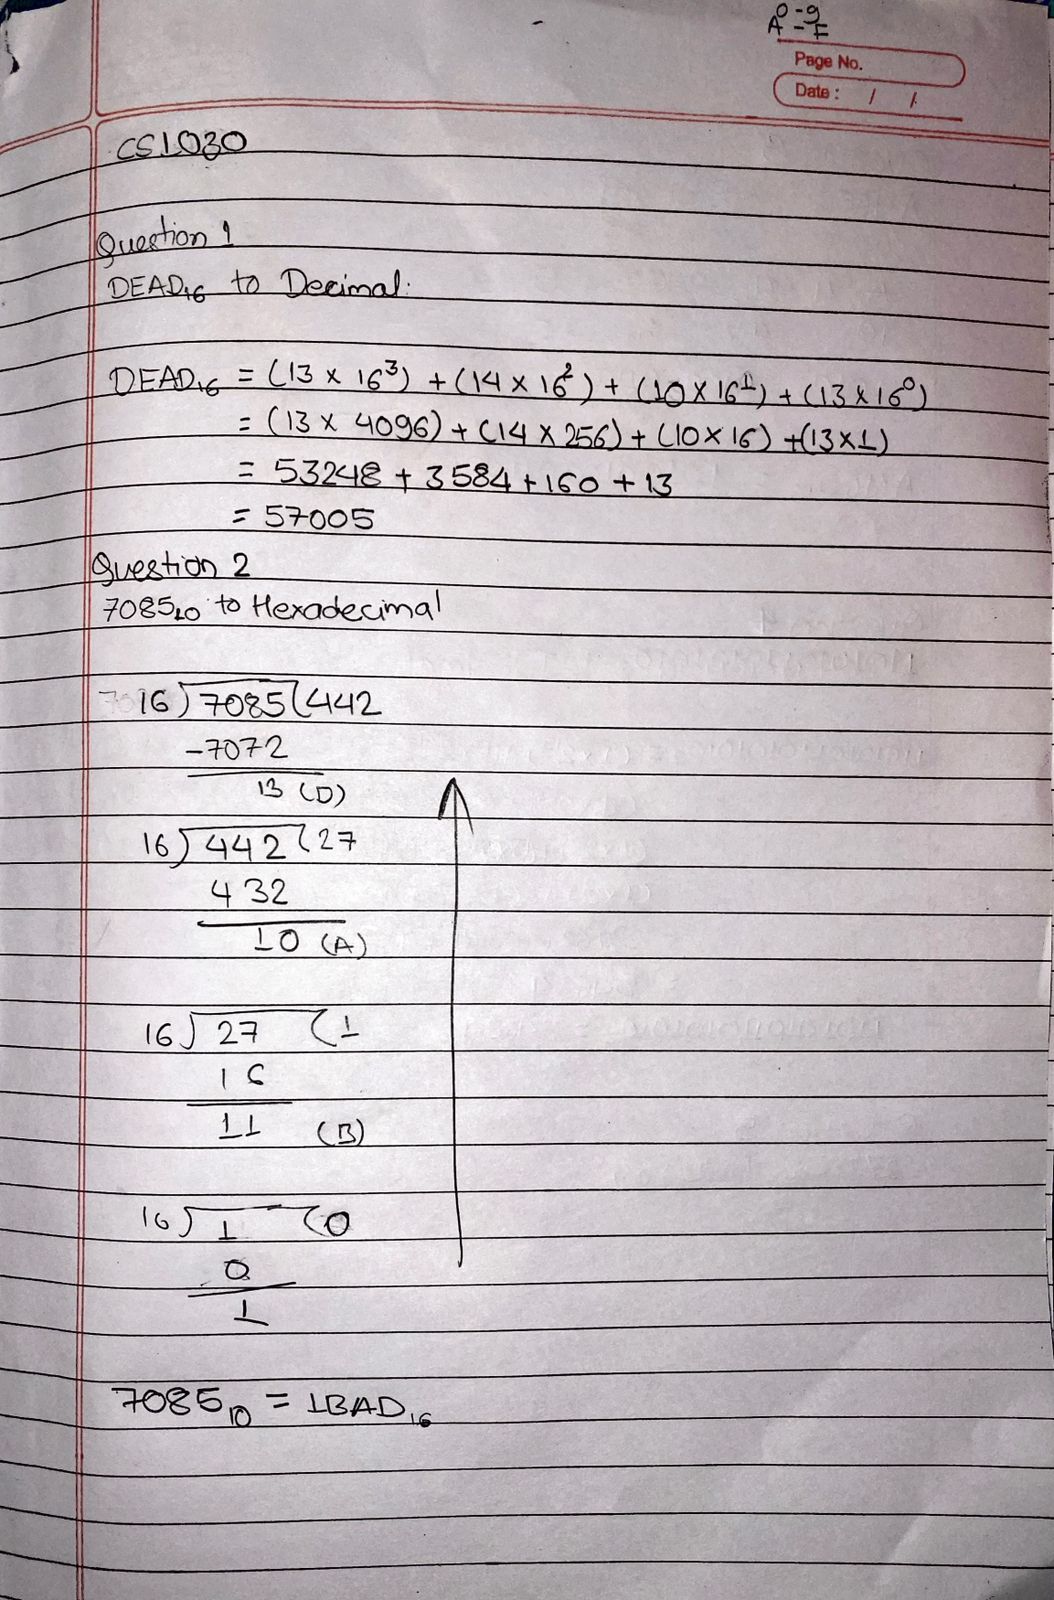 0-9
A-F
Page No.
Date: / /
CS1030
Question 1
DEAD₁₆ to Decimal:
DEAD₁₆ = (13 x 16³) + (14 x 16²) + (10 x 16¹) + (13 x 16⁰)
= (13 x 4096) + (14 x 256) + (10 x 16) + (13 x 1)
= 53248 + 3584 + 160 + 13
= 57005
Question 2
7085₁₀ to Hexadecimal
16) 7085 (442
-7072
13 (D)
16) 442 (27
432
10 (A)
16) 27 (1
16
11 (B)
16) 1 (0
0
1
7085₁₀ = 1BAD₁₆